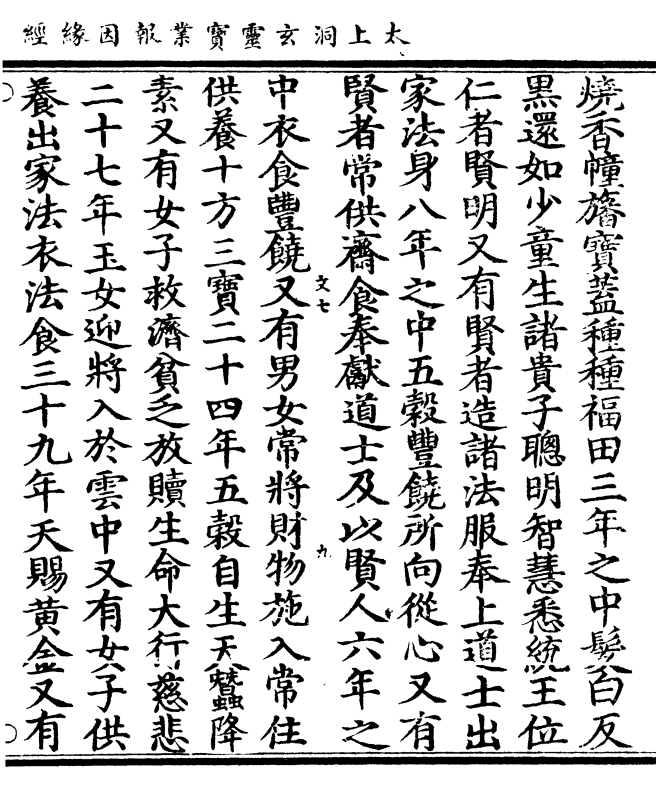 太上洞玄靈寶業報因緣經
燒香幢旛寶蓋種種福田三年之中髮白反
黑還如少童生諸貴子聰明智慧悉統王位
仁者賢明又有賢者造諸法服奉上道士出
家法身八年之中五穀豐饒所向從心又有
賢者常供齋食奉獻道士及以賢人六年之
文七
九
中衣食豐饒又有男女常將財物施入常住
供養十方三寶二十四年五穀自生天蠶降
素又有女子救濟貧乏放贖生命大行慈悲
二十七年玉女迎將入於雲中又有女子供
養出家法衣法食三十九年天賜黃金又有